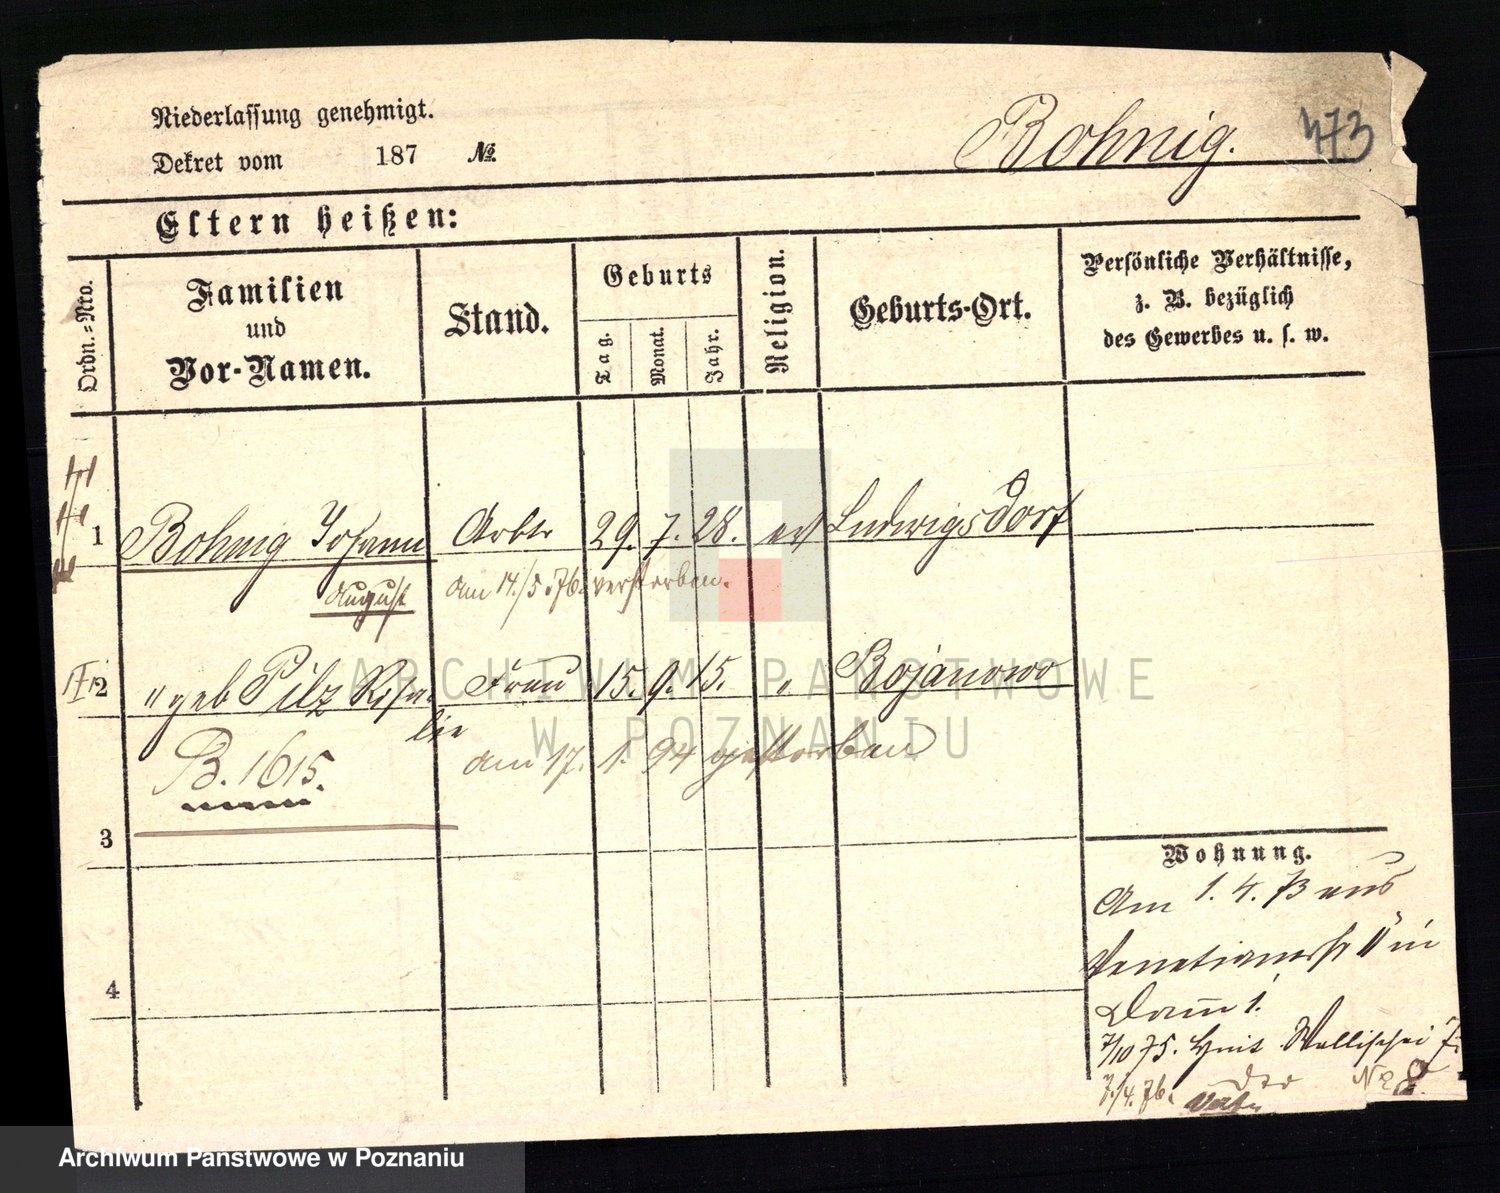 Niederlassung genehmigt.
Dekret vom 187 №
Bohnig. 473
Eltern heißen:
Ordn.=Nro.
Familien und Vor-Namen.
Stand.
Geburts
Tag. Monat. Jahr.
Religion.
Geburts-Ort.
Persönliche Verhältnisse,
z. B. bezüglich
des Gewerbes u. s. w.
1 Bohnig Johann Arbtr 29. 7. 28. ev Ludwigsdorf
August am 14./5. 76. verstorben.
2 " geb Pilz Rosa- Frau 15. 9. 15. " Bojanowo
lie
B. 1615. am 17. 1. 94 gestorben
3
Wohnung.
Am 1. 4. 73 aus
Venetianerstr in
Dom 1.
4
7/10 75. Wallischei
7./4. 76. Der No 8
ARCHIWUM PAŃSTWOWE
W POZNANIU
Archiwum Państwowe w Poznaniu